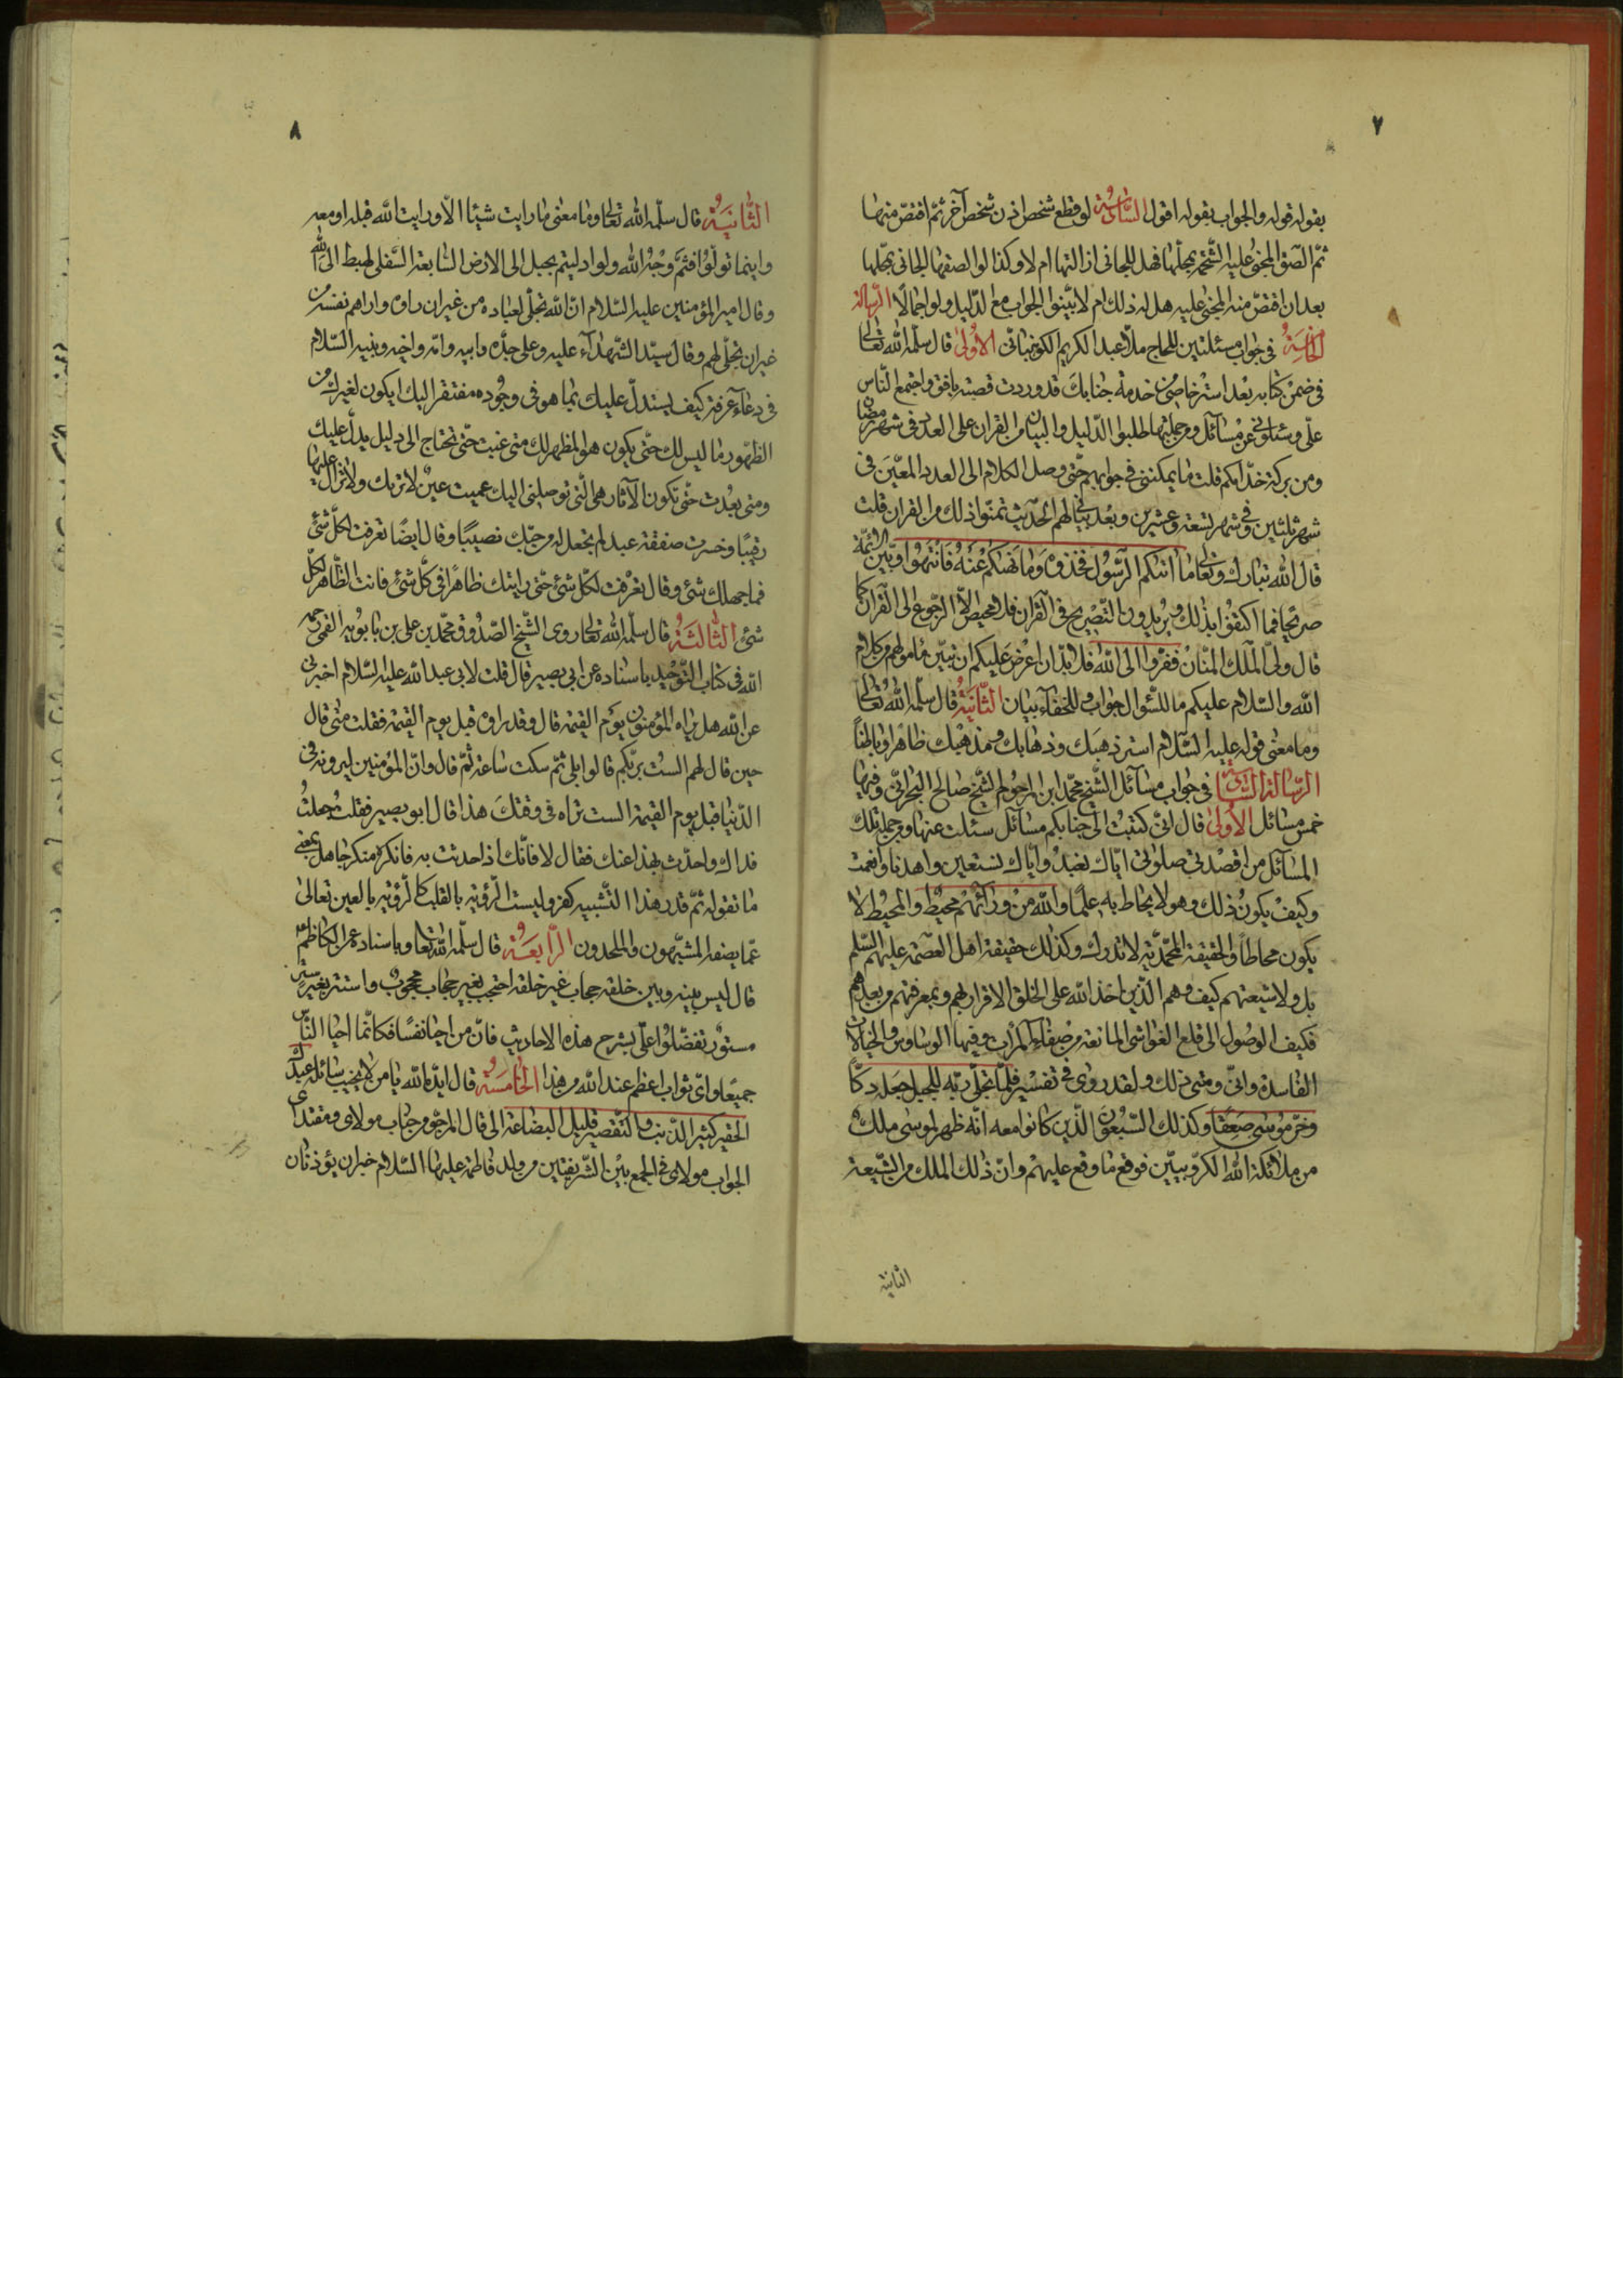 ٧
بقوله قوله والجواب بقوله اقول السّادسة لو قطع شخص اذن شخص آخر ثمّ اقتصّ منها
ثمّ الصق المجنى عليه الشّحمة بمحلّها فهل للجانى ازالتها ام لا وكذا لو الصقها الجانى بمحلّها
بعد ان اقتصّ منه المجنى عليه هل له ذلك ام لا بيّنوا الجواب مع الدّليل ولو اجمالًا الرّسالة
الخامسة فى جواب مسئلتين للحاج ملّا عبد الكريم الاولى قال سلّمه الله تعالى
فى ضمن كتابه بعد استرخاصى من خدمة جنابك قد وردت قصبة بافق واجتمع النّاس
علّى وسئلونى عن مسآئل ومن جملتها طلبوا الدّليل والبيان من القران على العدد فى شهر رمضان
ومن بركة خدّامكم قلت ما يمكننى فى جوابهم حتّى وصل الكلام الى العدد المعيّن فى
شهر ثلثين وفى شهر تسعة وعشرين وبعد بيانى لهم الحديث تمنّوا ذلك من القران قلت
قال الله تبارك وتعالى ما اتيكم الرّسول فخذوه وما نهيكم عنه فانتهوا وبيّن الائمّة
صريحًا فما اكتفوا بذلك ويريدون التّصريح فى القران فلا محيص الّا الرّجوع الى القران كما
قال ولىّ الملك المنّان ففرّوا الى الله فلابدّ ان اعرض عليكم ان تبيّن مامولهم من كلام
الله والسّلام عليكم ما للسّوال جواب وللخفآء بيان الثّانية قال سلّمه الله تعالى
وما معنى قوله عليه السّلام استر ذهبك وذهابك ومذهبك ظاهرًا وباطنًا
الرّسالة السّادسة فى جواب مسآئل الشّيخ محمّد ابن المرحوم الشّيخ صالح البحرانى وفيها
خمس مسائل الاولى قال انّى كتبت الى جنابكم مسآئل سئلت عنها ومن جملة تلك
المسآئل من اقصد فى صلوتى ايّاك نعبد وايّاك نستعين واهدنا وانعمت
وكيف يكون ذلك وهو لا يحاط به علمًا والله من ورآئهم محيط والمحيط لا
يكون محاطاً والحقيقة المحمّديّة لا تدرك وكذلك حقيقة اهل العصمة عليهم السّلم
بل ولا شيعتهم كيف وهم الّذين اخذ الله على الخلق الاقرار لهم وبمعرفتهم من بعدهم
فكيف الوصول الى قلع الغواشى المانعة من صفاء المرآت وفيها الوساوس والخيالات
الفاسدة وانّى ومتى ذلك ولقد روى فى تفسير فلمّا تجلّى ربّه للجبل جعله دكّاً
وخرّ موسى صعقًا وكذلك السّبعون الّذين كانوا معه انّه ظهر لموسى ملك
من ملائكة الله الكرّوبيّين فوقع ما وقع عليهم وانّ ذلك الملك من الشّيعة
الثانية
٨
الثّانية قال سلّمه الله تعالى وما معنى ما رايت شيئا الّا ورايت الله قبله او معه
واينما تولّوا فثمّ وجه الله ولو ادليتم بحبل الى الارض السّابعة السّفلى لهبط الى الله
وقال امير المؤمنين عليه السّلام انّ الله تجلّى لعباده من غير ان راوه واراهم نفسه من
غير ان يتجلّى لهم وقال سيّد الشّهدآء عليه وعلى جدّه وابيه وامّه واخيه وبنيه السّلام
فى دعآء عرفة كيف يستدلّ عليك بما هو فى وجوده مفتقر اليك ايكون لغيرك من
الظّهور ما ليس لك حتّى يكون هو المظهر لك متى غبت حتّى تحتاج الى دليل يدلّ عليك
ومتى بعدت حتّى تكون الآثار هى الّتى توصلنى اليك عميت عين لا تريك ولا تزال عليها
رقيبًا وخسرت صفقة عبد لم تجعل له من حبّك نصيبًا وقال ايضًا تعرفت لكلّ شئ
فما جهلك شئ وقال تعرّفت لكلّ شئ حتّى رايتك ظاهرًا فى كلّ شئ فانت الظّاهر لكلّ
شئ الثّالثة قال سلّمه الله تعالى روى الشّيخ الصّدوق محمّد بن على بن بابويه القمى رحمه
الله فى كتاب التّوحيد باسناده عن ابى بصير قال قلت لابى عبد الله عليه السّلام اخبرنى
عن الله هل يراه المؤمنون يوم القيمة قال وقد راوه قبل يوم القيمة فقلت متى قال
حين قال لهم الست بربّكم قالوا بلى ثمّ سكت ساعة ثمّ قال وانّ المؤمنين ليرونه فى
الدّنيا قبل يوم القيمة الست تراه فى وقتك هذا قال ابو بصير فقلت جعلت
فداك واحدّث بهذا عنك فقال لا فانّك اذا حدثت به فانكره منكر جاهل بمعنى
ما تقوله ثمّ قدر هذا التّشبيه كفر وليست الرّؤية بالقلب كالرّؤية بالعين تعالى
عمّا يصفه المشبّهون والملحدون الرّابعة قال سلّمه الله تعالى وباسناده عن الكاظم
قال ليس بينه وبين خلقه حجاب غير خلقه احتجب بغير حجاب محجوب واستتر بغير ستر
مستور تفضّلوا علّى بشرح هذه الاحاديث فانّ من احيا نفسًا فكانّما احيا النّاس
جميعًا واىّ ثواب اعظم عند الله من هذا الخامسة قال ايّده الله يا من لا يخيب سائله عبدك
الحقير كثير الذّنب والتّقصير قليل البضاعة الى قال المرجوّ من جناب مولاى ومقتداى
الجواب مولاى فى الجمع بين الشّريفتين من ولد فاطمة عليها السّلام خبران يؤذنان